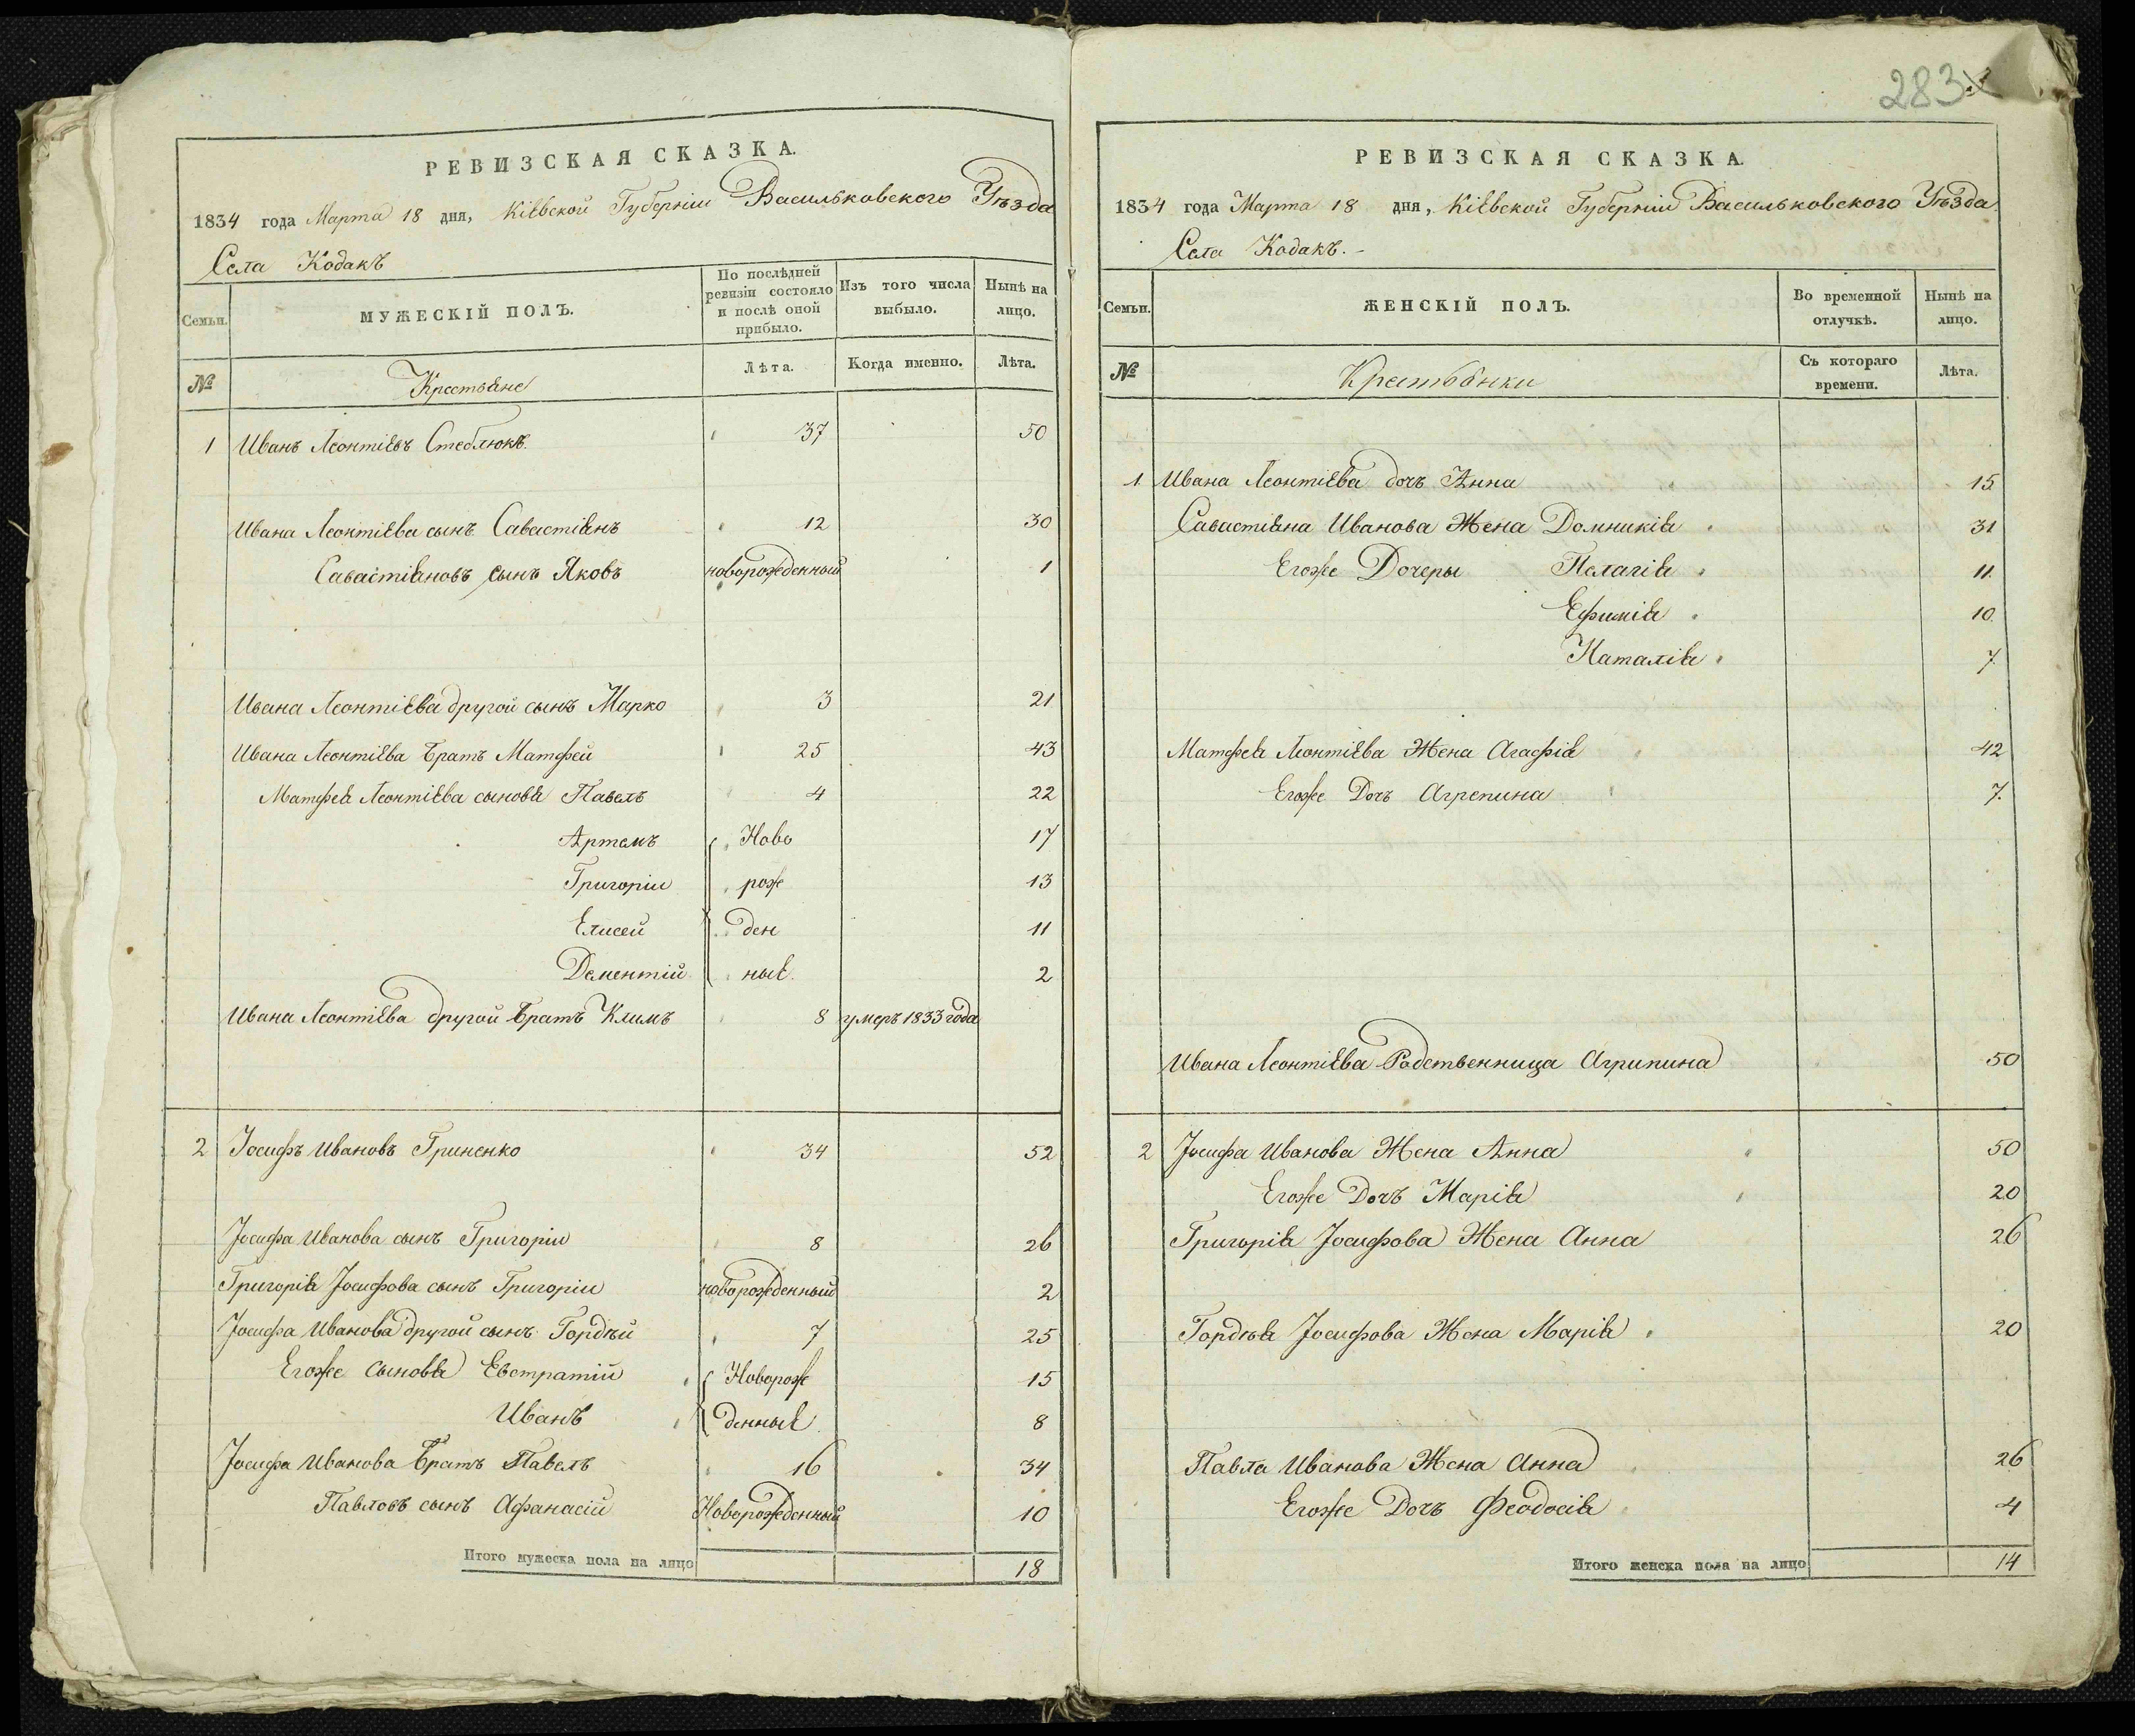 283
РЕВИЗСКАЯ СКАЗКА.
1834 года Марта 18 дня, Кіевской Губерніи Васильковского Уѣзда
Села Кодакъ
Семьи.
МУЖЕСКІЙ ПОЛЪ.
По послѣдней ревизіи состояло и послѣ оной прибыло.
Изъ того числа выбыло.
Нынѣ на лицо.
№
Крестьяне
Лѣта.
Когда именно.
Лѣта.
1 Иванъ Леонтіевъ Стеблюкъ 37 50
Ивана Леонтіева сынъ Савастіянъ 12 30
Савастіяновъ сынъ Яковъ новорожденный 1
Ивана Леонтіева другой сынъ Марко 3 21
Ивана Леонтіева братъ Матфей 25 43
Матфея Леонтіева сыновя Павелъ 4 22
Артемъ Ново 17
Григоріи рож 13
Елисей ден 11
Дементій ные 2
Ивана Леонтіева другой братъ Климъ 8 умеръ 1833 года
2 Іосифъ Ивановъ Гриненко 34 52
Іосифа Иванова сынъ Григоріи 8 26
Григорія Іосифова сынъ Григоріи новорожденный 2
Іосифа Иванова другой сынъ Гордѣй 7 25
Егоже сыновя Евстратій Новорож 15
Иванъ денные 8
Іосифа Иванова братъ Павелъ 16 34
Павловъ сынъ Афанасій Новорожденный 10
Итого мужеска пола на лицо 18
РЕВИЗСКАЯ СКАЗКА.
1834 года Марта 18 дня, Кіевской Губерніи Васильковского Уѣзда
Села Кодакъ.
Семьи.
ЖЕНСКІЙ ПОЛЪ.
Во временной отлучкѣ.
Нынѣ на лицо.
№
Крестьянки
Съ котораго времени.
Лѣта.
1 Ивана Леонтіева дочъ Анна 15
Савастіяна Иванова Жена Домникія 31
Егоже Дочеры Пелагія 11.
Ефимія 10.
Наталія 7
Матфея Леонтіева Жена Агафія 42
Егоже Дочъ Агрепина 7.
Ивана Леонтіева Родственница Агрипина 50
2 Іосифа Иванова Жена Анна 50
Егоже Дочъ Марія 20
Григорія Іосифова Жена Анна 26
Гордѣя Іосифова Жена Марія 20
Павла Иванова Жена Анна 26
Егоже Дочъ Феодосія 4
Итого женска пола на лицо 14